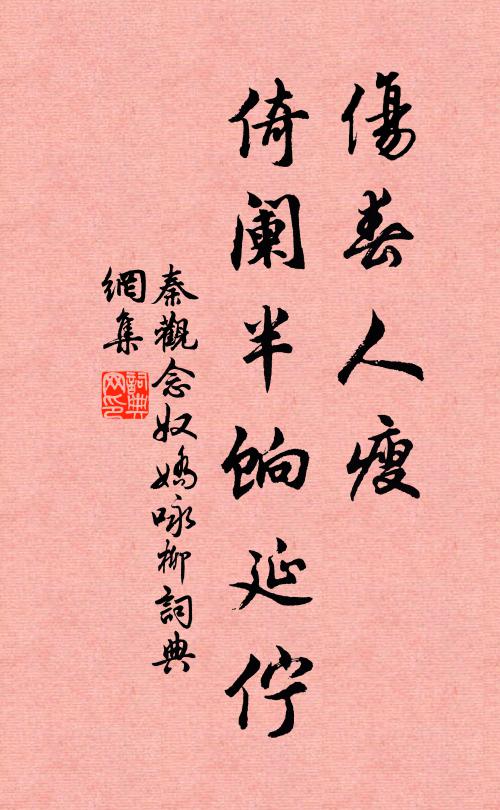 傷春人瘦
倚阑半餉延佇
秦觀念奴嬌咏柳詞典
網集
詞典
网印